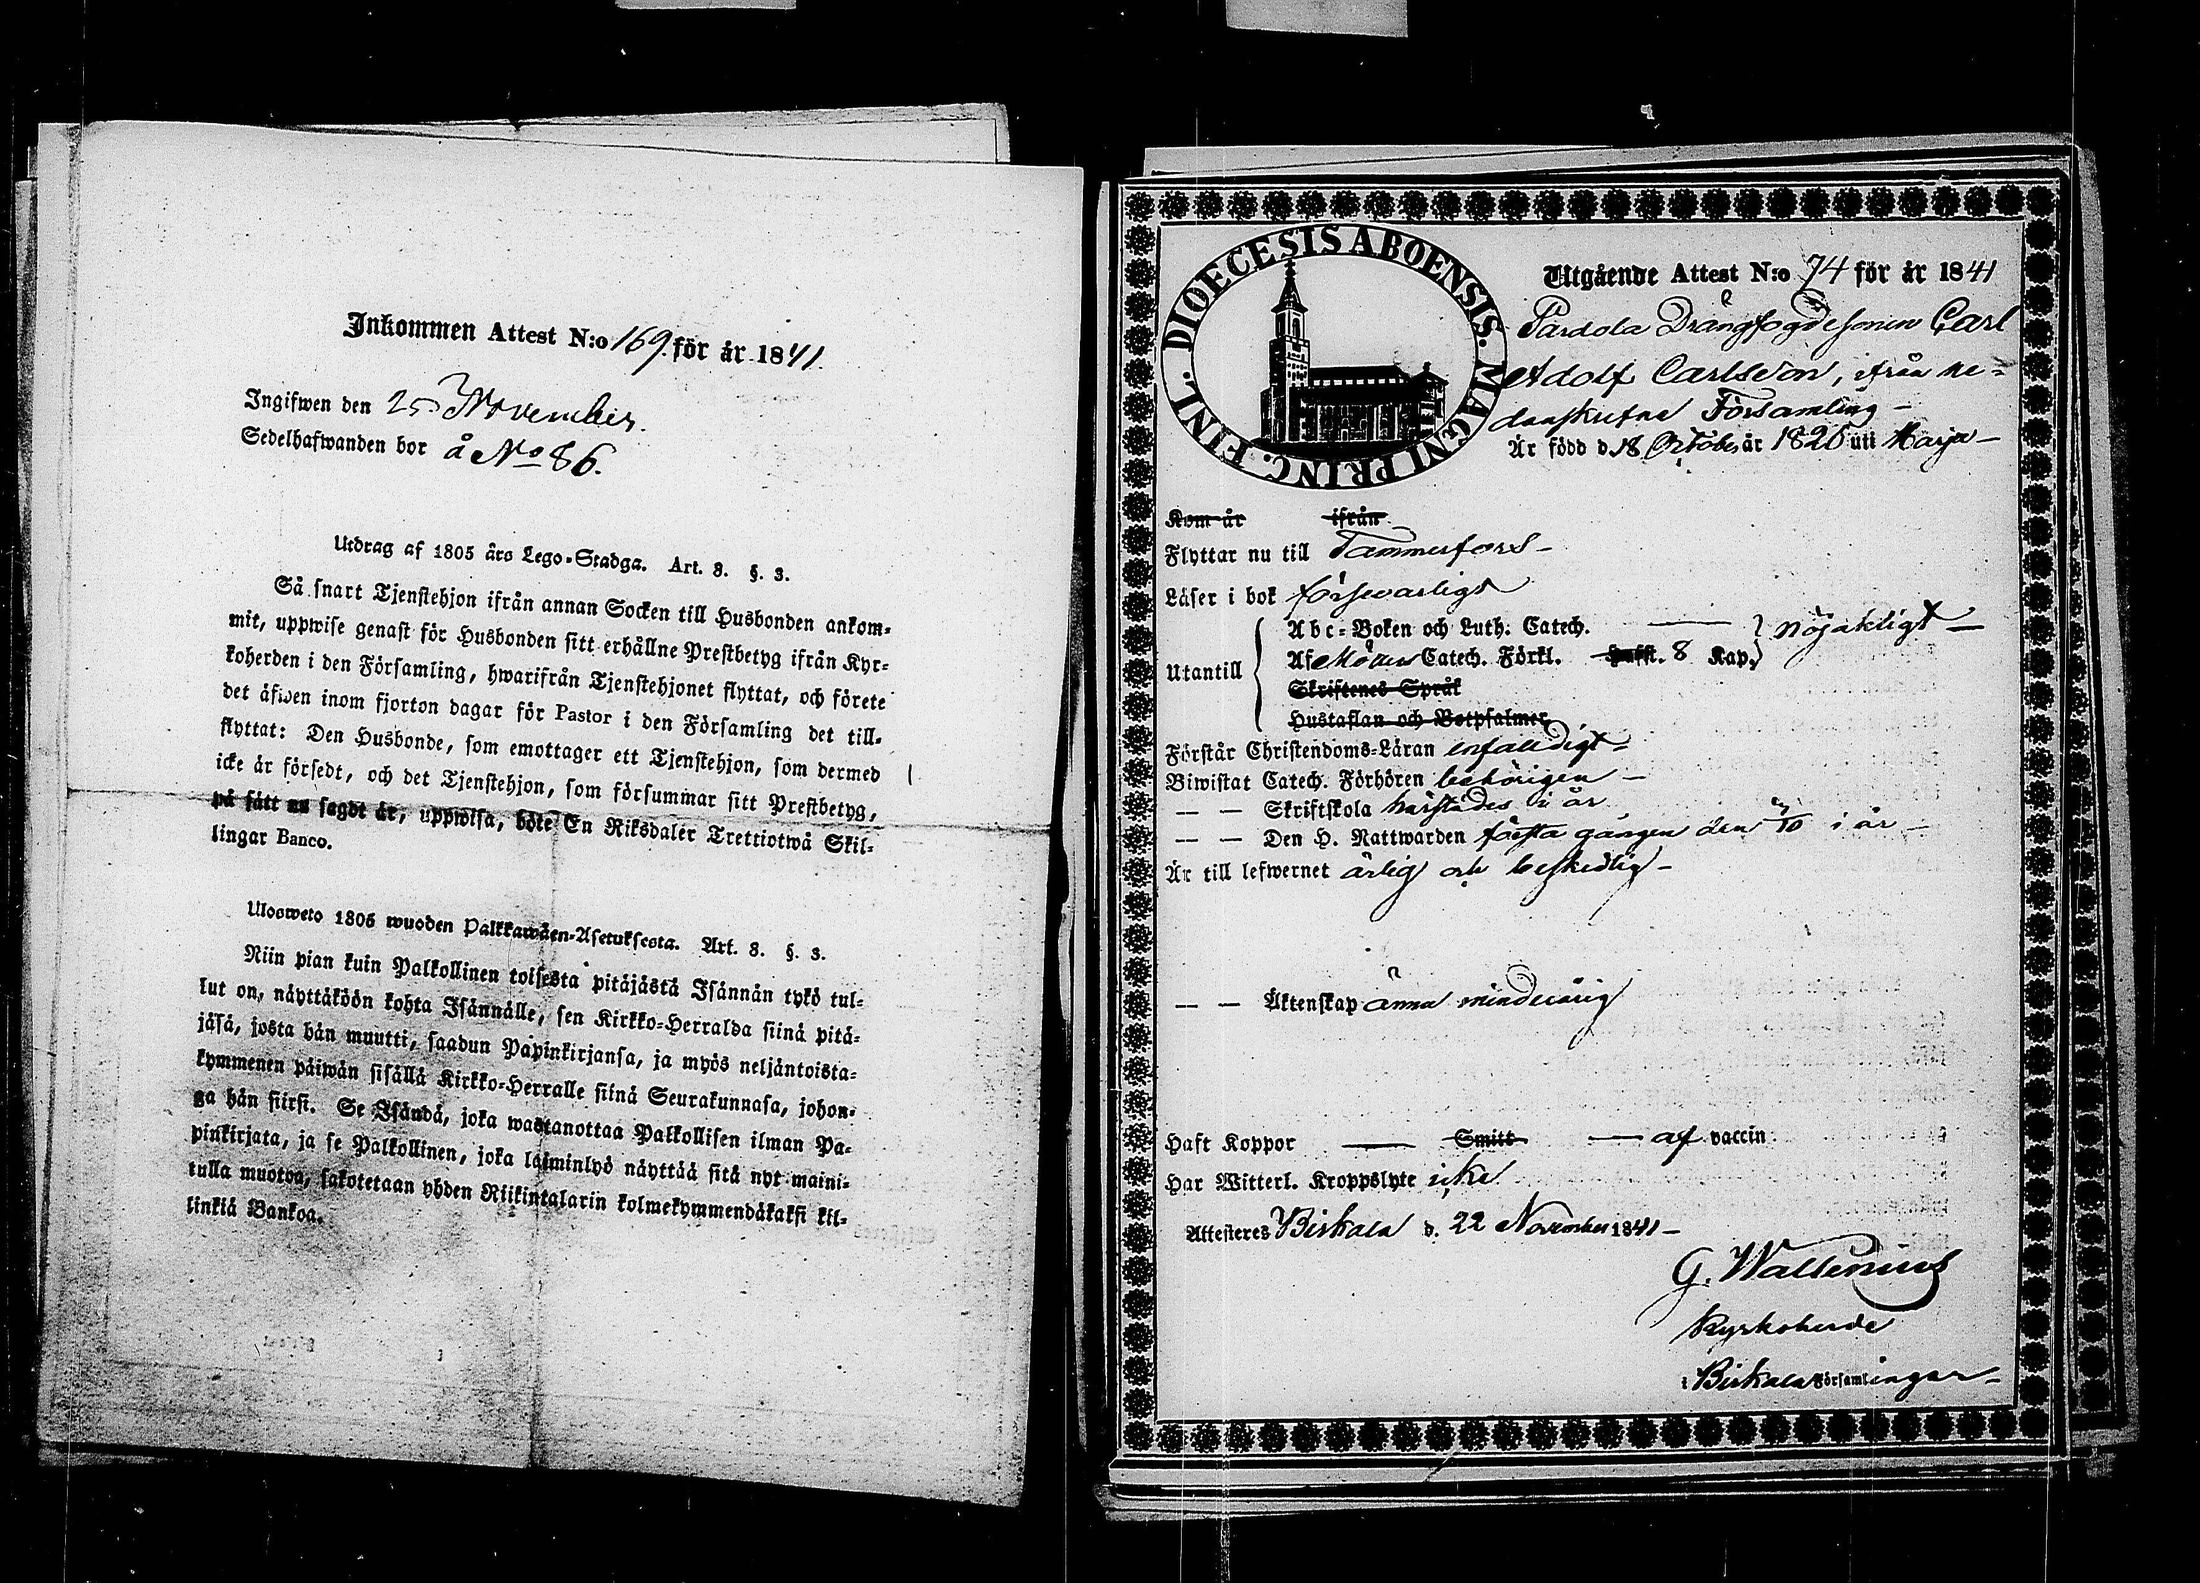 Inkommen Attest N:o 169 för år 1841.
Ingifwen den 25 November.
Sedelhafwanden bor å No 86.
Utdrag af 1805 års Lego-Stadga. Art. 8. §. 3.
Så snart Tjenstehjon ifrån annan Socken till Husbonden ankom-
mit, uppwise genast för Husbonden sitt erhållne Prestbetyg ifrån Kyr-
koherden i den Församling, hwarifrån Tjenstehjonet flyttat, och förete
det äfwen inom fjorton dagar för Pastor i den Församling det till-
flyttat: Den Husbonde, som emottager ett Tjenstehjon, som dermed
icke är försedt, och det Tjenstehjon, som försummar sitt Prestbetyg,
på sätt nu sagdt är, uppwisa, böte En Riksdaler Trettiotwå Skil-
lingar Banco.
Ulosweto 1805 wuoden Palkkawäen-Asetuksesta. Art. 8. §. 3.
Niin pian kuin Palkollinen toisesta pitäjästä Isännän tykö tul-
lut on, näyttäköön kohta Isännälle, sen Kirkko-Herralda siinä pitä-
jäsä, josta hän muutti, saadun Papinkirjansa, ja myös neljäntoista-
kymmenen päiwän sisällä Kirkko-Herralle siinä Seurakunnasa, johon-
ga hän siirsi. Se Isändä, joka wastanottaa Palkollisen ilman Pa-
pinkirjata, ja se Palkollinen, joka laiminlyö näyttää sitä nyt maini-
tulla muotoa, sakotetaan yhden Riikintalarin kolmekymmendäkaksi kil-
linkiä Bankoa.
DIOECESIS ABOENSIS. MAGNI PRINC. FINL.
Utgående Attest N:o 74 för år 1841
Pardola Drängfogdesonen Carl
Adolf Carlsson, ifrån ne-
danskrefne Församling
Är född d. 18 October år 1826 uti Harju
Kom år ifrån
Flyttar nu till Tammerfors
Läser i bok försvarligt
Utantill
Abc-Boken och Luth. Catech. nöjaktligt
Af Möllers Catech. Förkl. Hufst. 8 Kap.
Skriftenes Språk
Hustaflan och Botpsalmer
Förstår Christendoms-Läran enfalldigt
Biwistat Catech. Förhören behörigen
— — Skriftskola härstädes i år
— — Den H. Nattwarden första gången den /10 i år
Är till lefwernet ärlig och beskedlig
— — Äktenskap ännu minderårig
Haft Koppor — Smitt — af vaccin
Har Witterl. Kroppslyte icke
Attesteres Birkala d. 22 November 1841
G. Wallenius
Kyrkoherde
i Birkala Församlingar